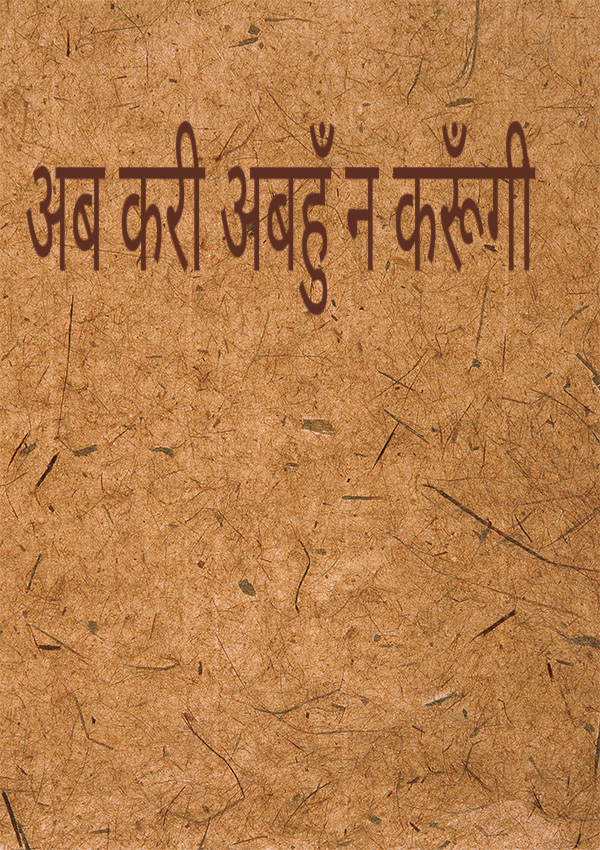 अब करी अबहुँ न करूँगी